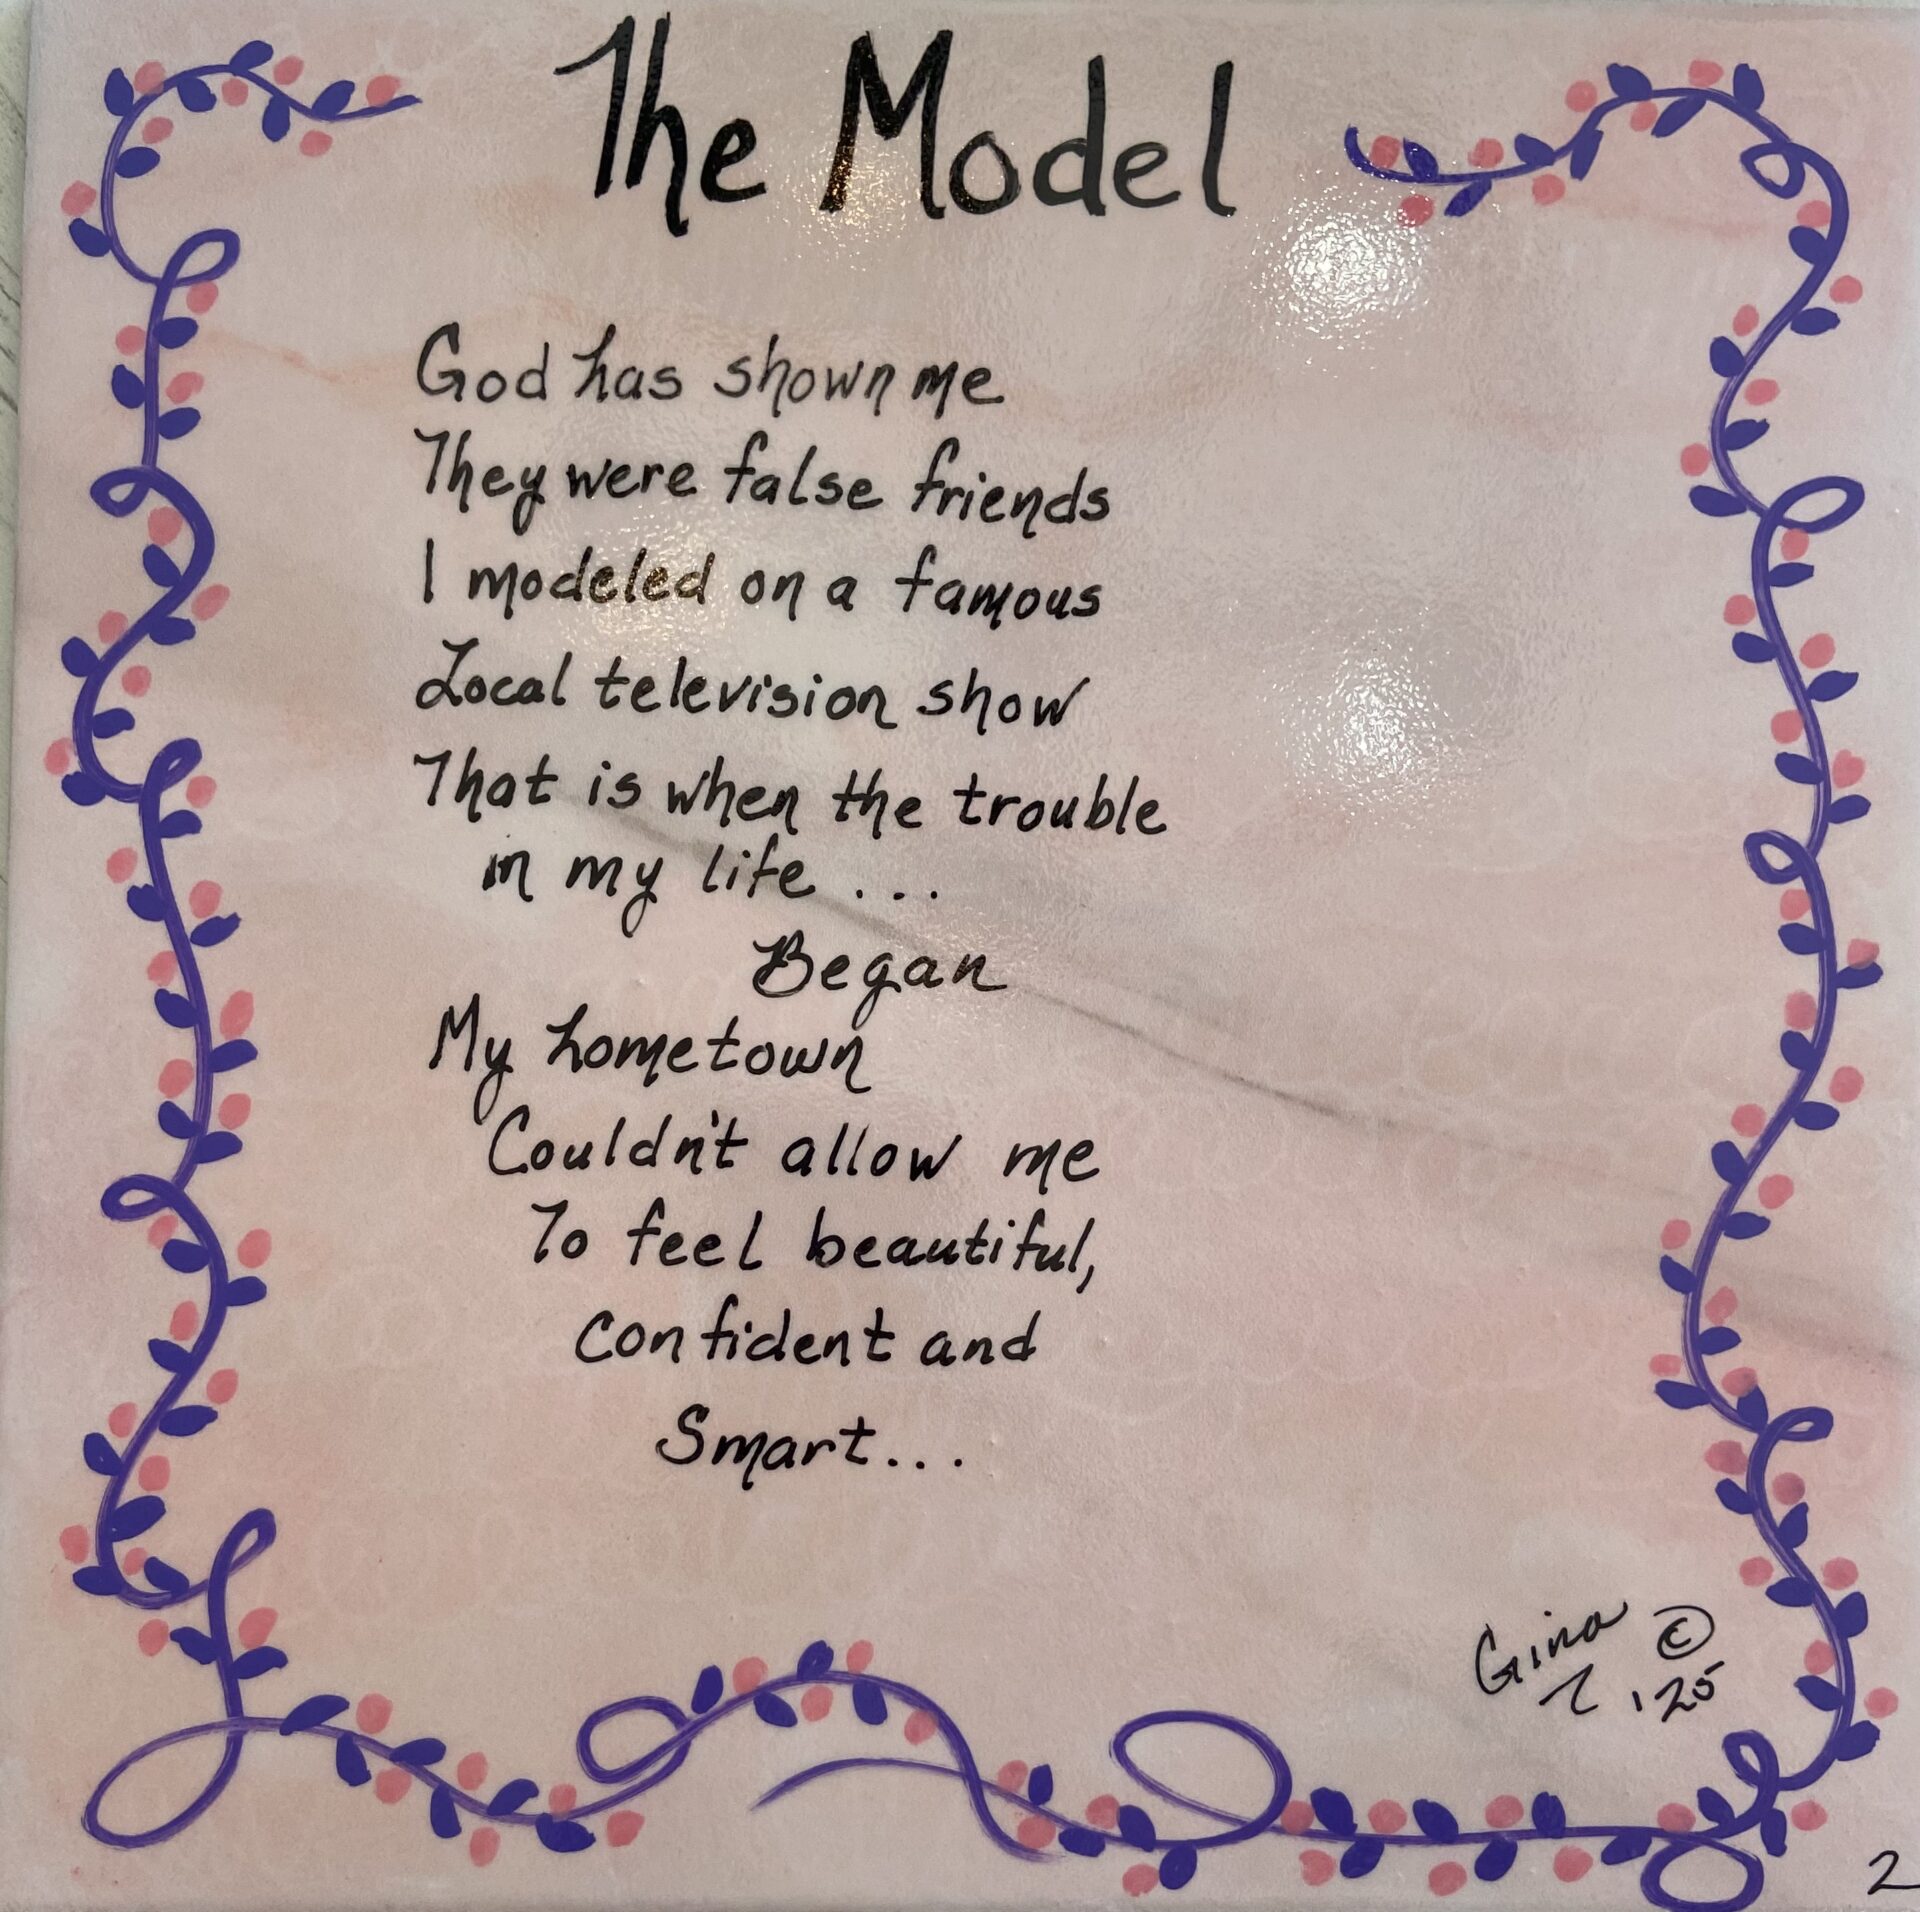 The Model
God has shown me
They were false friends
I modeled on a famous
Local television show
That is when the trouble
in my life...
Began
My hometown
Couldn't allow me
To feel beautiful,
confident and
Smart...
Gina ©
'25
2